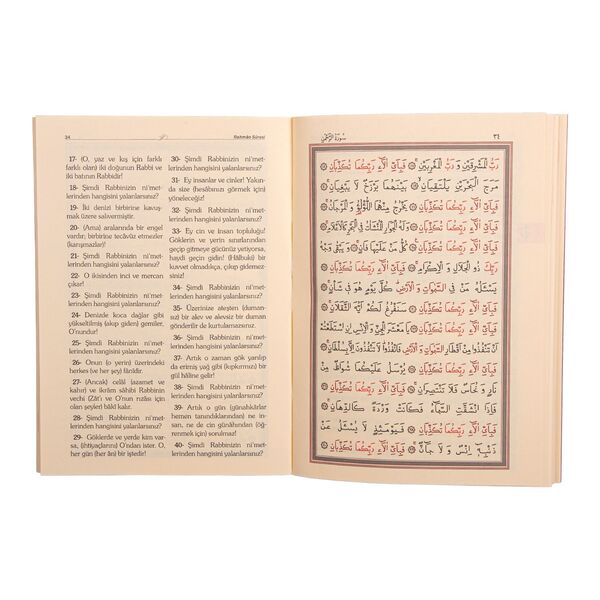 34
Rahmân Sûresi
17- (O, yaz ve kış için farklı
farklı olan) iki doğunun Rabbi ve
iki batının Rabbidir!
18- Şimdi Rabbinizin ni'met-
lerinden hangisini yalanlarsınız?
19- İki denizi birbirine kavuş-
mak üzere salıvermiştir.
20- (Ama) aralarında bir engel
vardır; birbirine tecâvüz etmezler
(karışmazlar)!
21- Şimdi Rabbinizin ni'met-
lerinden hangisini yalanlarsınız?
22- O ikisinden inci ve mercan
çıkar!
23- Şimdi Rabbinizin ni'met-
lerinden hangisini yalanlarsınız?
24- Denizde koca dağlar gibi
yükseltilmiş (akıp giden) gemiler,
O'nundur!
25- Şimdi Rabbinizin ni'met-
lerinden hangisini yalanlarsınız?
26- Onun (o yerin) üzerindeki
herkes (ve şey) fânîdir.
27- (Ancak) celâl (azamet ve
kahır) ve ikrâm sâhibi Rabbinin
vechi (Zât'ı ve O'nun rızâsı için
olan şeyler) bâkî kalır.
28- Şimdi Rabbinizin ni'met-
lerinden hangisini yalanlarsınız?
29- Göklerde ve yerde kim var-
sa, (ihtiyaçlarını) O'ndan ister. O,
her gün (her ân) bir iştedir!
30- Şimdi Rabbinizin ni'met-
lerinden hangisini yalanlarsınız?
31- Ey insanlar ve cinler! Yakın-
da size (hesâbınızı görmek için)
yöneleceğiz!
32- Şimdi Rabbinizin ni'met-
lerinden hangisini yalanlarsınız?
33- Ey cin ve insan topluluğu!
Göklerin ve yerin sınırlarından
geçip gitmeye gücünüz yetiyorsa,
haydi geçin gidin! (Hâlbuki) bir
kuvvet olmadıkça, çıkıp gidemez-
siniz!
34- Şimdi Rabbinizin ni'met-
lerinden hangisini yalanlarsınız?
35- Üzerinize ateşten (duman-
sız) bir alev ve alevsiz bir duman
gönderilir de kurtulamazsınız.
36- Şimdi Rabbinizin ni'met-
lerinden hangisini yalanlarsınız?
37- Artık o zaman gök yarılıp
da erimiş yağ gibi (kıpkırmızı) bir
gül hâline gelir!
38- Şimdi Rabbinizin ni'met-
lerinden hangisini yalanlarsınız?
39- Artık o gün (günahkârlar
hemen tanındıklarından) ne in-
san, ne de cin günâhından (öğ-
renmek için) sorulmaz!
40- Şimdi Rabbinizin ni'met-
lerinden hangisini yalanlarsınız?
سُورَةُ الرَّحْمٰنِ
٣٤
رَبُّ الْمَشْرِقَيْنِ وَ رَبُّ الْمَغْرِبَيْنِ ۞ فَبِاَىِّ اٰلَٓاءِ رَبِّكُمَا تُكَذِّبَانِ ۞
مَرَجَ الْبَحْرَيْنِ يَلْتَقِيَانِ ۞ بَيْنَهُمَا بَرْزَخٌ لَا يَبْغِيَانِ ۞
فَبِاَىِّ اٰلَٓاءِ رَبِّكُمَا تُكَذِّبَانِ ۞ يَخْرُجُ مِنْهُمَا اللُّؤْلُؤُ وَ الْمَرْجَانُ ۞
فَبِاَىِّ اٰلَٓاءِ رَبِّكُمَا تُكَذِّبَانِ ۞ وَلَهُ الْجَوَارِ الْمُنْشَاٰتُ فِى الْبَحْرِ كَالْاَعْلَامِ ۞
فَبِاَىِّ اٰلَٓاءِ رَبِّكُمَا تُكَذِّبَانِ ۞ كُلُّ مَنْ عَلَيْهَا فَانٍ ۞ وَيَبْقٰى وَجْهُ
رَبِّكَ ذُو الْجَلَالِ وَ الْاِكْرَامِ ۞ فَبِاَىِّ اٰلَٓاءِ رَبِّكُمَا تُكَذِّبَانِ ۞
يَسْـَٔلُهُ مَنْ فِى السَّمٰوَاتِ وَ الْاَرْضِ كُلَّ يَوْمٍ هُوَ فِى شَاْنٍ ۞
فَبِاَىِّ اٰلَٓاءِ رَبِّكُمَا تُكَذِّبَانِ ۞ سَنَفْرُغُ لَكُمْ اَيُّهَ الثَّقَلَانِ ۞
فَبِاَىِّ اٰلَٓاءِ رَبِّكُمَا تُكَذِّبَانِ ۞ يَا مَعْشَرَ الْجِنِّ وَ الْاِنْسِ اِنِ اسْتَطَعْتُمْ
اَنْ تَنْفُذُوا مِنْ اَقْطَارِ السَّمٰوَاتِ وَ الْاَرْضِ فَانْفُذُوا لَا تَنْفُذُونَ اِلَّا بِسُلْطَانٍ ۞
فَبِاَىِّ اٰلَٓاءِ رَبِّكُمَا تُكَذِّبَانِ ۞ يُرْسَلُ عَلَيْكُمَا شُوَاظٌ مِنْ
نَارٍ وَ نُحَاسٌ فَلَا تَنْتَصِرَانِ ۞ فَبِاَىِّ اٰلَٓاءِ رَبِّكُمَا تُكَذِّبَانِ ۞
فَاِذَا انْشَقَّتِ السَّمَٓاءُ فَكَانَتْ وَرْدَةً كَالدِّهَانِ ۞
فَبِاَىِّ اٰلَٓاءِ رَبِّكُمَا تُكَذِّبَانِ ۞ فَيَوْمَئِذٍ لَا يُسْـَٔلُ عَنْ
ذَنْبِهِ اِنْسٌ وَ لَا جَٓانٌّ ۞ فَبِاَىِّ اٰلَٓاءِ رَبِّكُمَا تُكَذِّبَانِ ۞